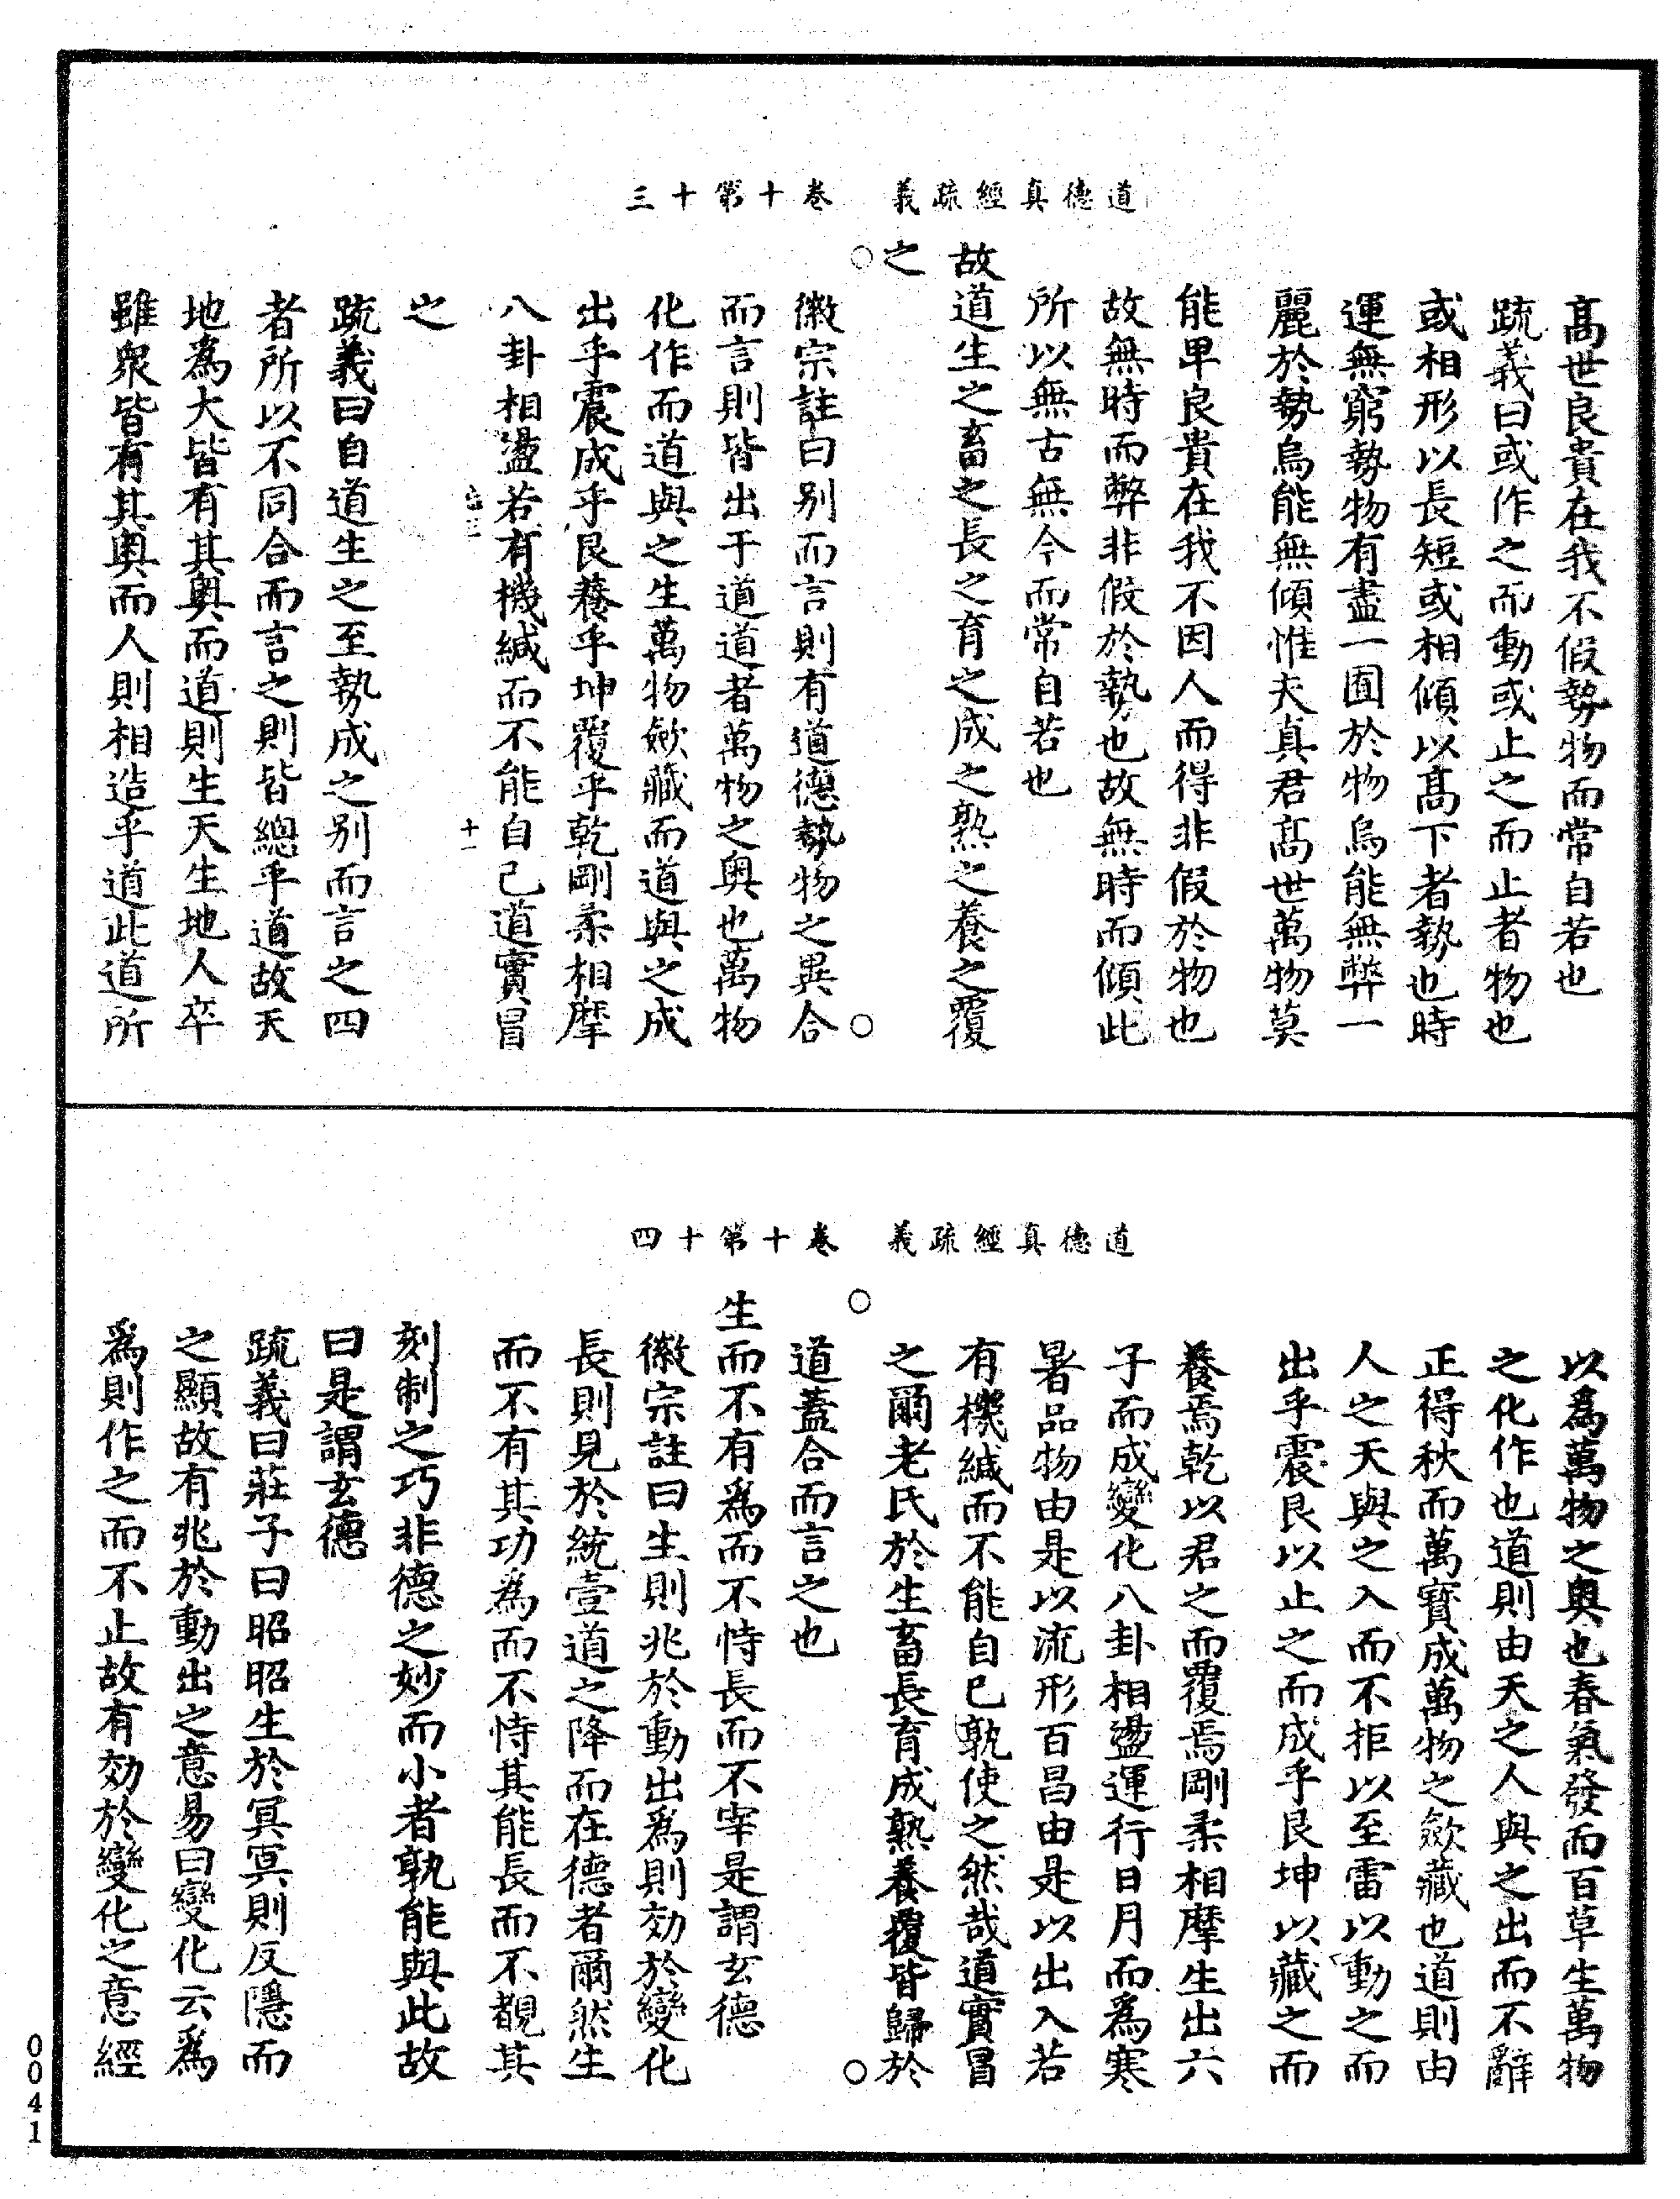 道德真經疏義　卷十第十三
高世良貴在我不假勢物而常自若也
䟽義曰或作之而動或止之而止者物也
或相形以長短或相傾以髙下者勢也時
運無窮勢物有盡一囿於物烏能無弊一
麗於勢烏能無傾惟夫真君髙世萬物莫
能卑良貴在我不因人而得非假於物也
故無時而弊非假於勢也故無時而傾此
所以無古無今而常自若也
故道生之畜之長之育之成之熟之養之覆
之
徽宗註曰别而言則有道德勢物之異合
而言則皆出于道道者萬物之奧也萬物
化作而道與之生萬物歛藏而道與之成
出乎震成乎艮養乎坤覆乎乾剛柔相摩
八卦相盪若有機緘而不能自已道實冒
十一
之
䟽義曰自道生之至勢成之别而言之四
者所以不同合而言之則皆緫乎道故天
地為大皆有其奧而道則生天生地人卒
雖衆皆有其奥而人則相造乎道此道所
道德真經疏義　卷十第十四
以爲萬物之奥也春氣發而百草生萬物
之化作也道則由天之人與之出而不辭
正得秋而萬寶成萬物之歛藏也道則由
人之天與之入而不拒以至雷以動之而
出乎震艮以止之而成乎艮坤以藏之而
養焉乾以君之而覆焉剛柔相摩生出六
子而成變化八卦相盪運行日月而爲寒
暑品物由是以流形百昌由是以出入若
有機緘而不能自已孰使之然哉道實冒
之爾老氏於生畜長育成熟養覆皆歸於
道蓋合而言之也
生而不有爲而不恃長而不宰是謂玄德
徽宗註曰生則兆於動出爲則効於變化
長則見於統壹道之降而在德者爾然生
而不有其功為而不恃其能長而不覩其
刻制之巧非德之妙而小者孰能與此故
曰是謂玄德
䟽義曰莊子曰昭昭生於冥冥則反隱而
之顯故有兆於動出之意易曰變化云爲
爲則作之而不止故有効於變化之意經
0041